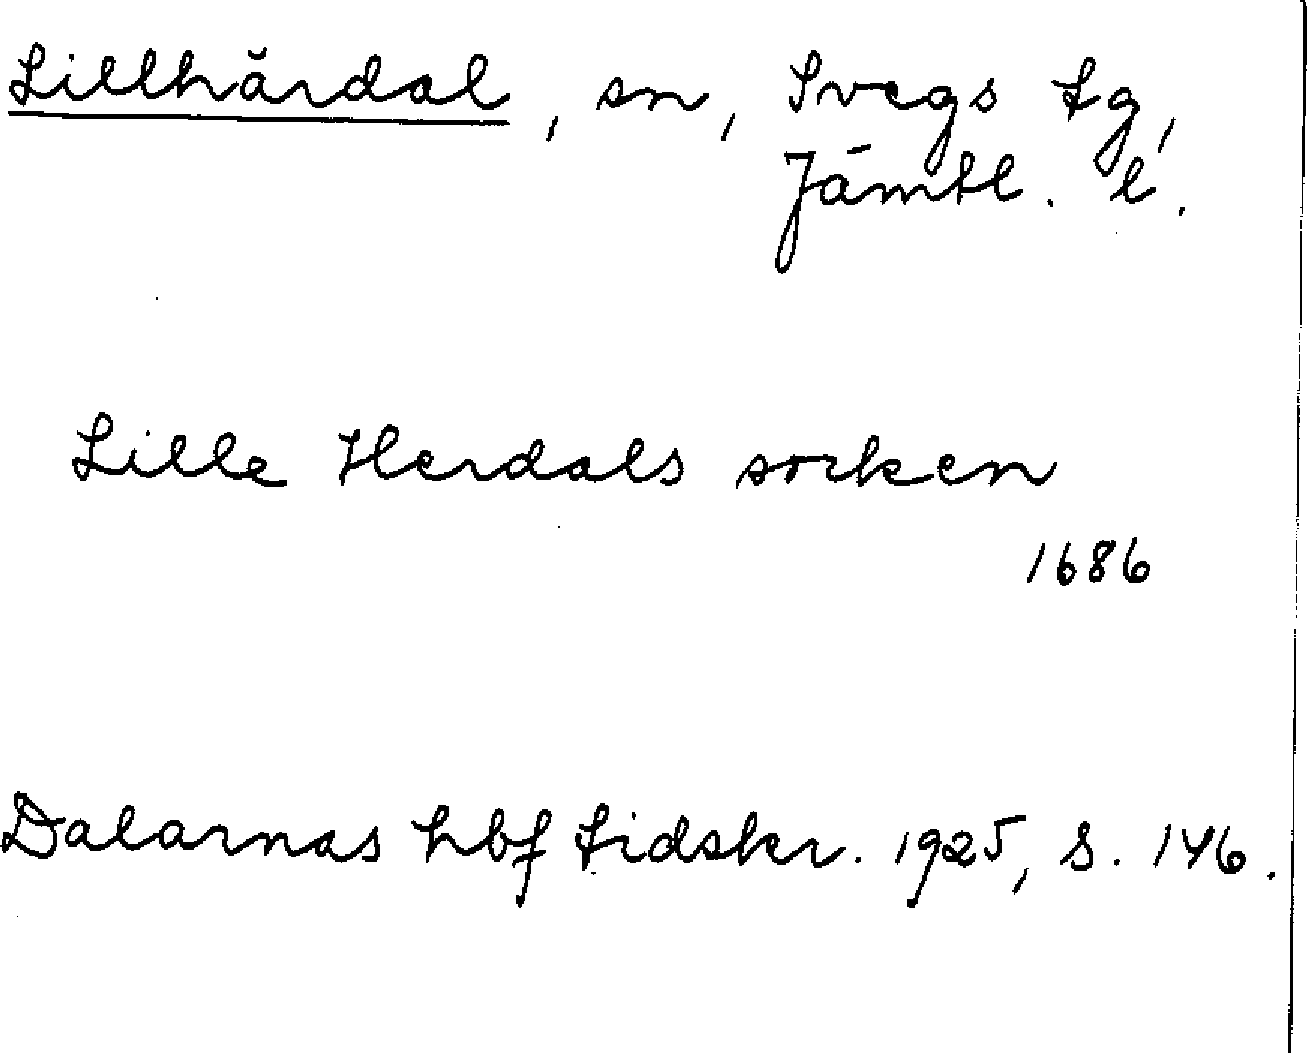 Lillhärdal, sn, Svegs tg,
Jämtl. l.
Lille Herdals socken
1686
Dalarnas hbf tidskr. 1925, s. 146.